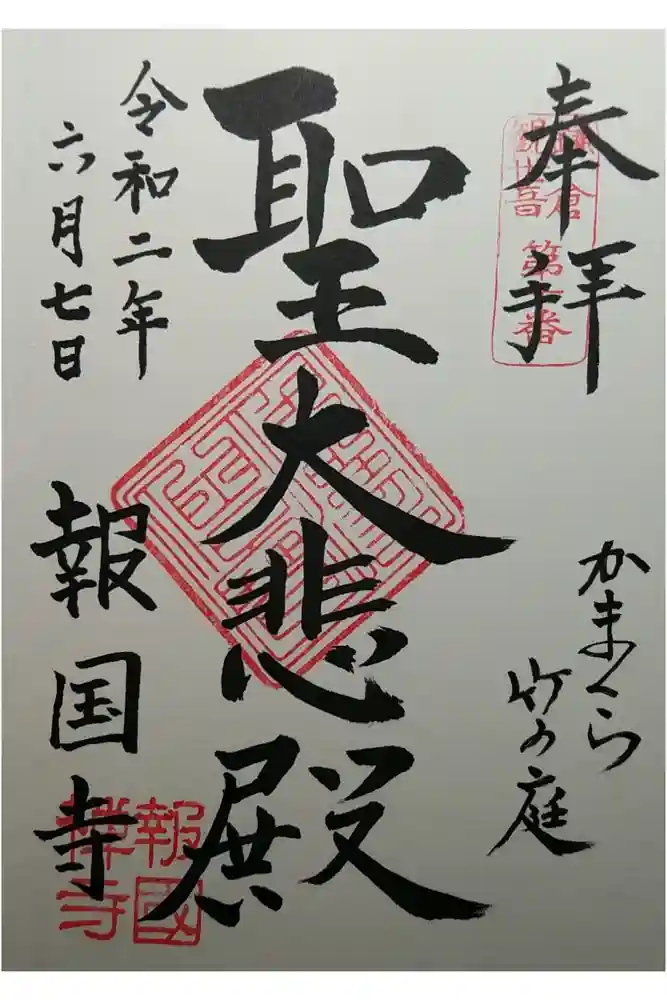 奉拝
鎌倉
観世音 第十番
かまくら
竹の庭
聖大悲殿
令和二年
六月七日
報国寺
報國
禅寺